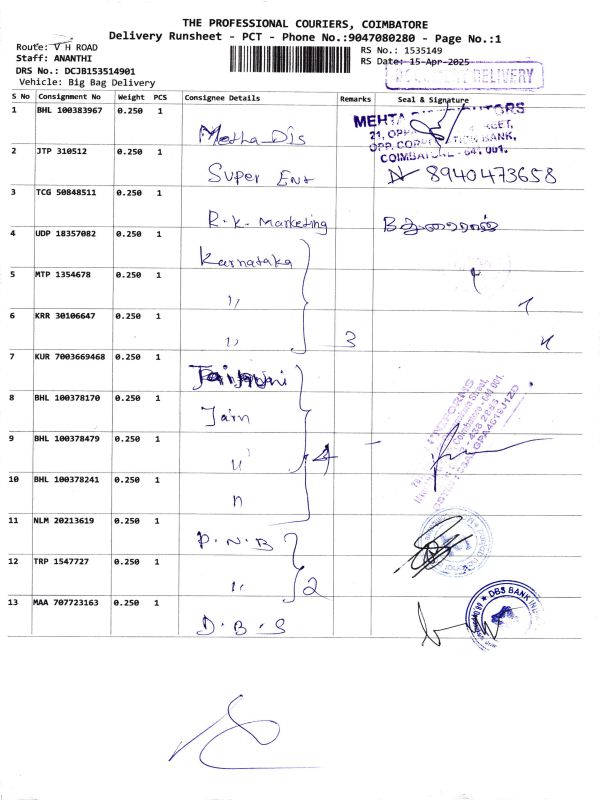 THE PROFESSIONAL COURIERS, COIMBATORE
Delivery Runsheet - PCT - Phone No.:9047080280 - Page No.:1
Route: V H ROAD
RS No.: 1535149
Staff: ANANTHI
RS Date: 15-Apr-2025
DRS No.: DCJB153514901
Vehicle: Big Bag Delivery
DELIVERY
S No Consignment No Weight PCS Consignee Details Remarks Seal & Signature
1 BHL 100383967 0.250 1 Metha Dis
MEHTA
21, OPP. STREET,
OPP. CORPORATION BANK,
COIMBATORE - 641 001.
2 JTP 310512 0.250 1 Super Ent 8940473658
3 TCG 50848511 0.250 1 R.K. Marketing
4 UDP 18357082 0.250 1 Karnataka
5 MTP 1354678 0.250 1 ,,
6 KRR 30106647 0.250 1 ,, 3
7 KUR 7003669468 0.250 1
8 BHL 100378170 0.250 1 Jain
9 BHL 100378479 0.250 1 u 4
10 BHL 100378241 0.250 1 n
11 NLM 20213619 0.250 1 P.N.B
12 TRP 1547727 0.250 1 ,, 2
13 MAA 707723163 0.250 1 D.B.S
DBS BANK